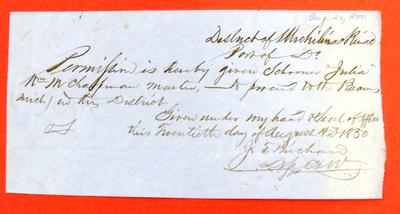 Aug. 20, 1850
District of Michilimackinac
Port of Do
Permission is hereby given Schooner "Julia"
Wm McChapman master, to proceed to the Beavers
Mich) in this District
Given under my hand & Seal of Office
this Twentieth day of August AD 1850